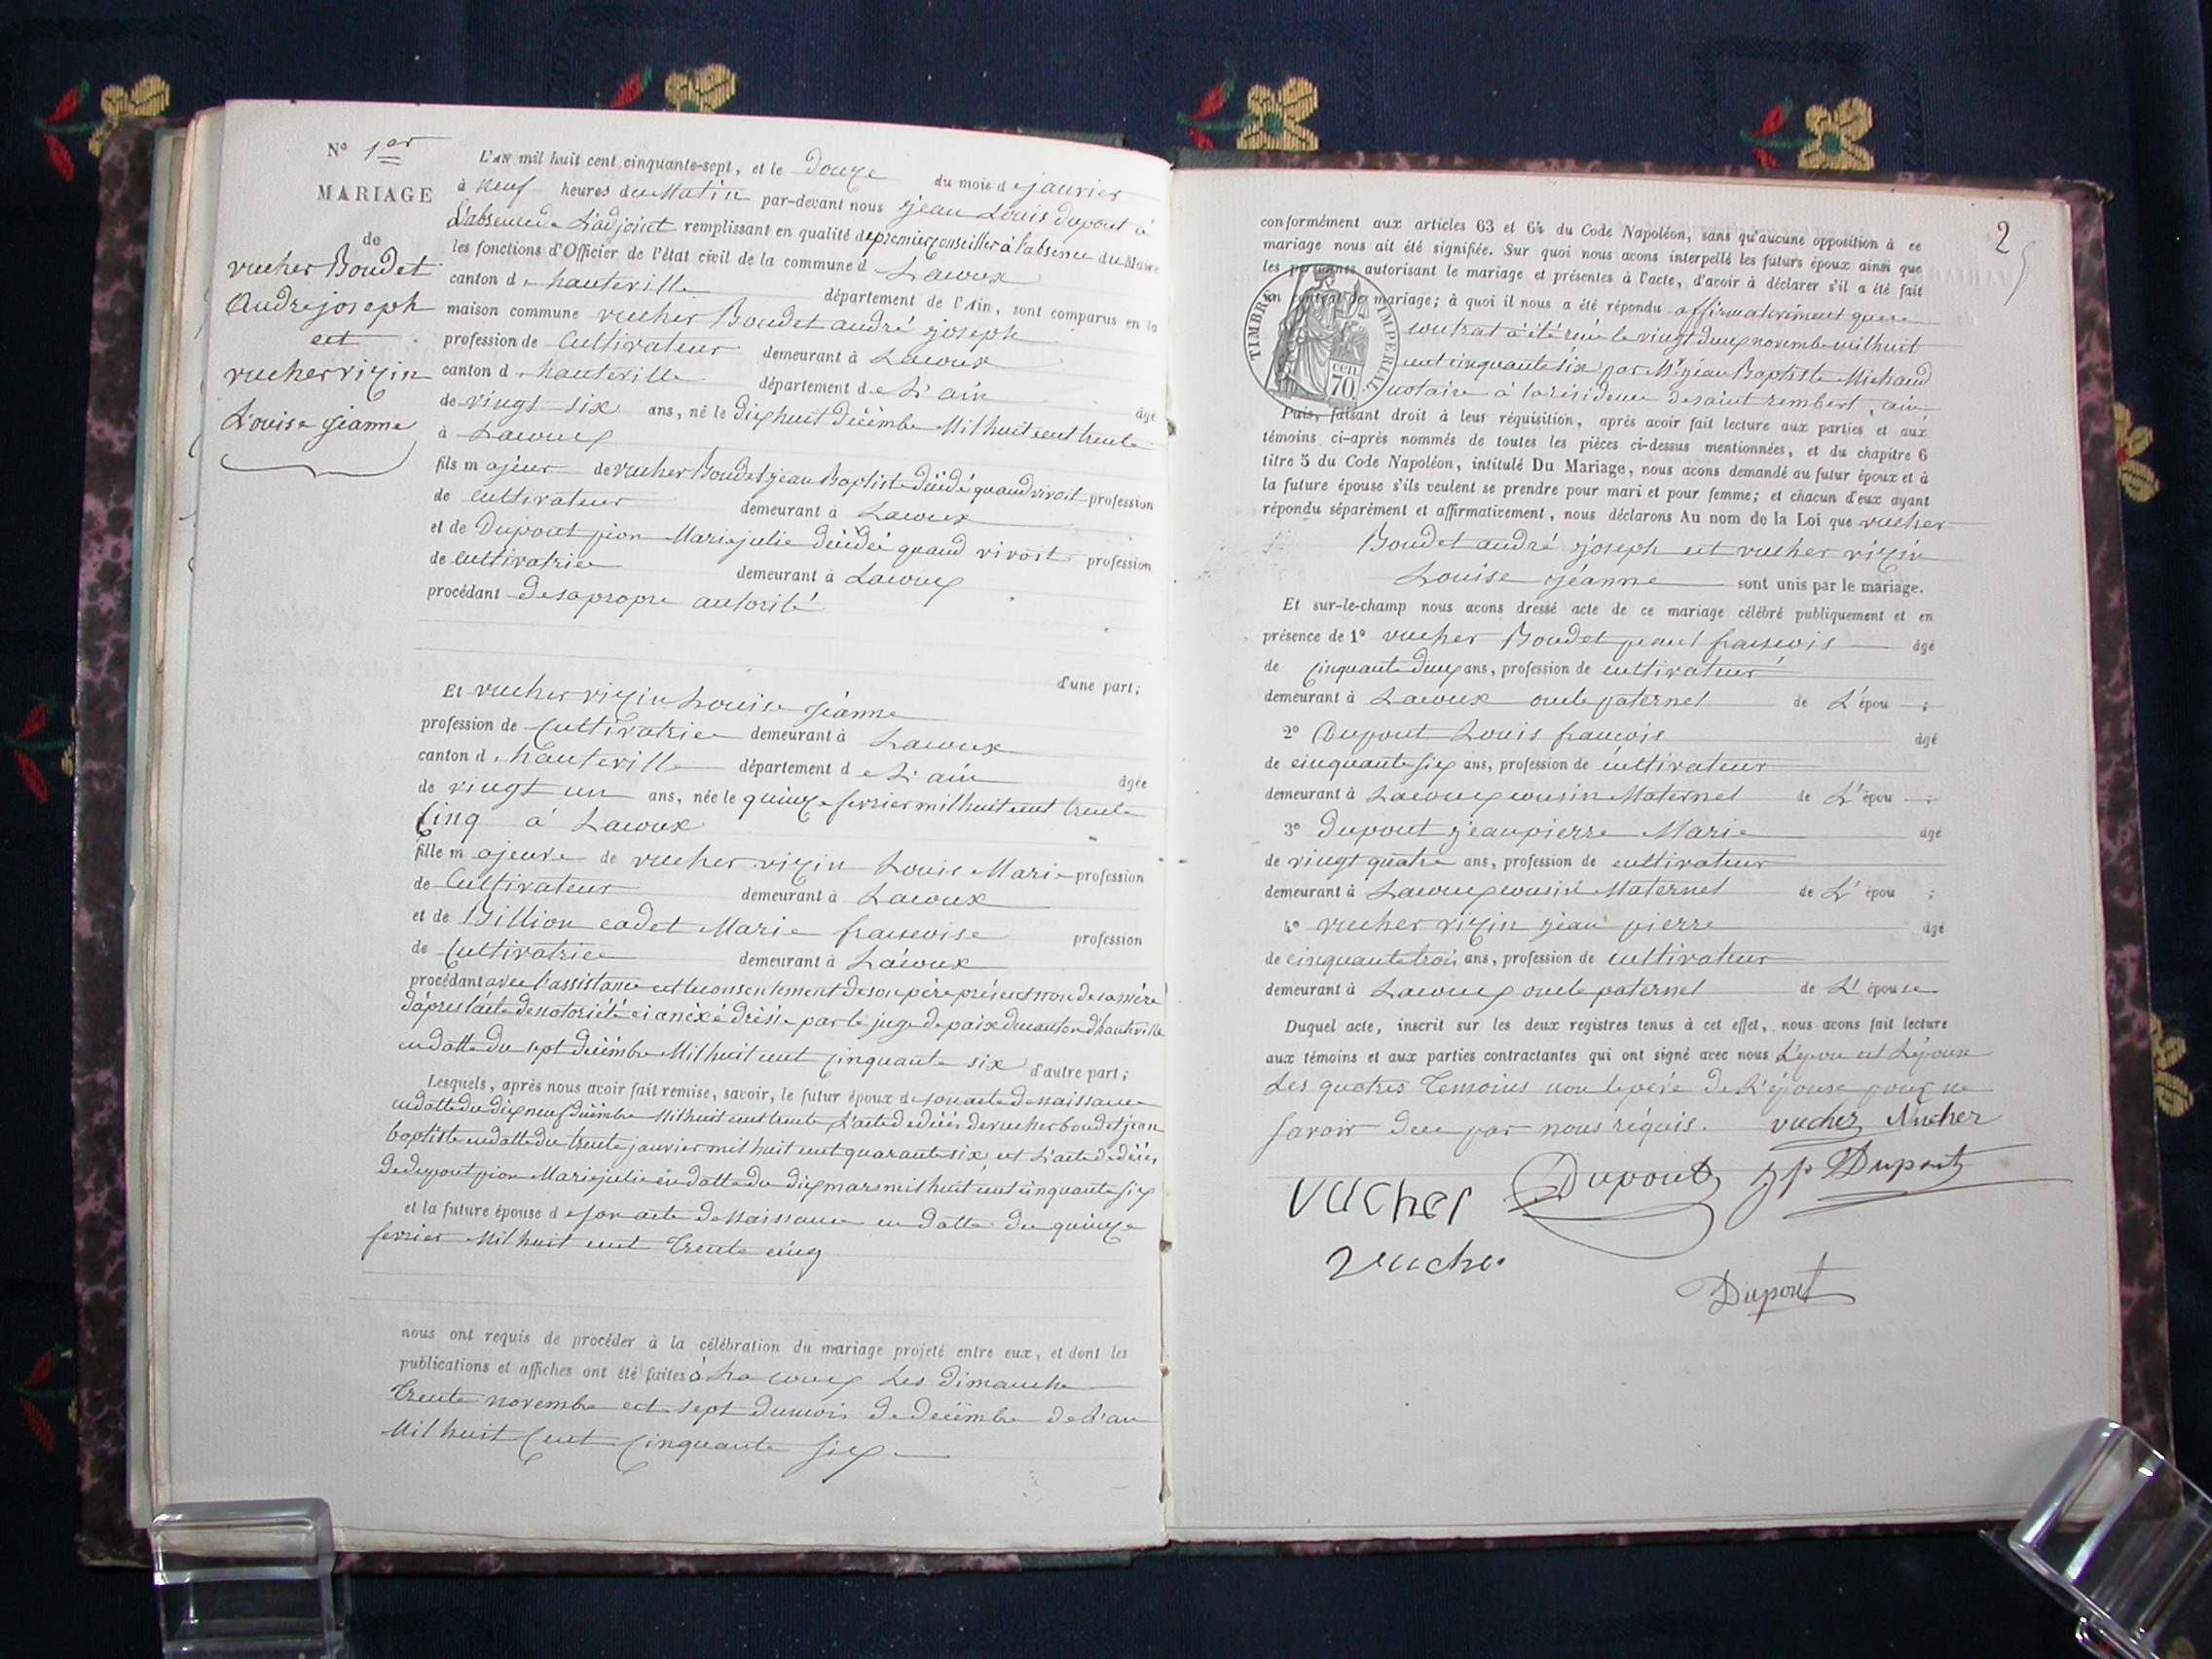 N° 1er
MARIAGE
de
vucher Boudet
André joseph
et
vucher vizin
Louise jéanne
L'AN mil huit cent cinquante-sept, et le Douze du mois de janvier
à neuf heures du Matin par-devant nous jean Louis dupont à
L'absence de L'adjoint remplissant en qualité de premier conseiller à l'absence du Maire
les fonctions d'Officier de l'état civil de la commune d Lacoux
canton d, hauteville département de l'Ain, sont comparus en la
maison commune vucher Boudet andré joseph
profession de Cultivateur demeurant à Lacoux
canton d, hauteville département de L'ain âgé
de vingt six ans, né le dix huit décembre Mil huit cent trente
à Lacoux
fils majeur de vucher Boudet jean Baptiste décédé quand vivoit profession
de cultivateur demeurant à Lacoux
et de Dupont pion Marie julie décédée quand vivoit profession
de cultivatrice demeurant à Lacoux
procédant de sa propre autorité
d'une part;
Et vucher vizin Louise jéanne
profession de Cultivatrice demeurant à Lacoux
canton d, hauteville département de L'ain âgée
de vingt un ans, née le quinze fevrier mil huit cent trente
Cinq à Lacoux
fille majeure de vucher vizin Louis Marie profession
de Cultivateur demeurant à Lacoux
et de Billion cadet Marie francoise profession
de Cultivatrice demeurant à Lacoux
procédant avec l'assistance et le consentement de son père présent non de sa mère
d'apres l'acte de notoriété ci anéxé dréssé par le juge de paix du canton d'hauteville
en datte du sept décembre Mil huit cent cinquante six d'autre part;
Lesquels, après nous avoir fait remise, savoir, le futur époux de son acte de naissance
en datte du dix neuf décembre Mil huit cent trente L'acte de décès de vucher boudet jean
baptiste en datte du trente janvier mil huit cent quarante six et L'acte de décès
de dupont pion Marie julie en datte du dix mars mil huit cent cinquante six
et la future épouse de son acte de naissance en datte du quinze
fevrier Mil huit cent trente cinq
nous ont requis de procéder à la célébration du mariage projeté entre eux, et dont les
publications et affiches ont été faites à Lacoux Les dimanche
trente novembre et sept du mois de décembre de L'an
Mil huit Cent Cinquante six
2
conformément aux articles 63 et 64 du Code Napoléon, sans qu'aucune opposition à ce
mariage nous ait été signifiée. Sur quoi nous avons interpellé les futurs époux ainsi que
les personnes autorisant le mariage et présentes à l'acte, d'avoir à déclarer s'il a été fait
un contrat de mariage; à quoi il nous a été répondu affirmativement que ce
contrat a été réçu le vingt deux novembre mil huit
cent cinquante six par Mr jean Baptiste Michaud
notaire à la résidence de saint rembert, ain,
TIMBRE IMPERIAL
cen. 70
Puis, faisant droit à leur réquisition, après avoir fait lecture aux parties et aux
témoins ci-après nommés de toutes les pièces ci-dessus mentionnées, et du chapitre 6
titre 5 du Code Napoléon, intitulé Du Mariage, nous avons demandé au futur époux et à
la future épouse s'ils veulent se prendre pour mari et pour femme; et chacun d'eux ayant
répondu séparément et affirmativement, nous déclarons Au nom de la Loi que vucher
Boudet andré joseph et vucher vizin
Louise jéanne sont unis par le mariage.
Et sur-le-champ nous avons dressé acte de ce mariage célébré publiquement et en
présence de 1° vucher Boudet francois âgé
de Cinquante deux ans, profession de cultivateur
demeurant à Lacoux oncle paternel de L'épou ;
2° Dupont Louis francois âgé
de cinquante six ans, profession de cultivateur
demeurant à Lacoux cousin Maternel de L'épou ;
3° Dupont jean pierre Marie âgé
de vingt quatre ans, profession de cultivateur
demeurant à Lacoux cousin Maternel de L'épou ;
4° vucher vizin jean pierre âgé
de cinquante trois ans, profession de cultivateur
demeurant à Lacoux oncle paternel de L'épouse
Duquel acte, inscrit sur les deux registres tenus à cet effet, nous avons fait lecture
aux témoins et aux parties contractantes qui ont signé avec nous L'époux et L'épouse
Les quatres temoins non le père de L'épouse pour ne
savoir de ce par nous réquis. vucher Vucher
Vucher Dupont jp Dupont
Vucher
Dupont